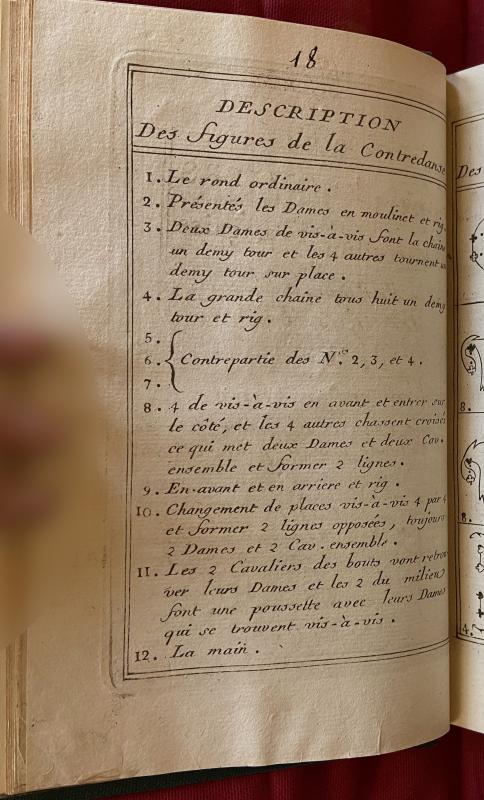 18
DESCRIPTION
Des figures de la Contredanse
1. Le rond ordinaire.
2. Présentés les Dames en moulinet et rig.
3. Deux Dames de vis-à-vis font la chaîne
un demy tour et les 4 autres tournent un
demy tour sur place.
4. La grande chaine tous huit un demy
tour et rig.
5.
6. Contrepartie des N.os 2, 3, et 4.
7.
8. 4 de vis-à-vis en avant et entrer sur
le côté, et les 4 autres chassent croisés
ce qui met deux Dames et deux Cav.
ensemble et former 2 lignes.
9. En avant et en arriere et rig.
10. Changement de places vis-à-vis 4 par 4
et former 2 lignes opposées, toujours
2 Dames et 2 Cav. ensemble.
11. Les 2 Cavaliers des bouts vont retrou
ver leurs Dames et les 2 du milieu
font une poussette avec leurs Dames
qui se trouvent vis-à-vis.
12. La main.
Des
8.
8.
4.